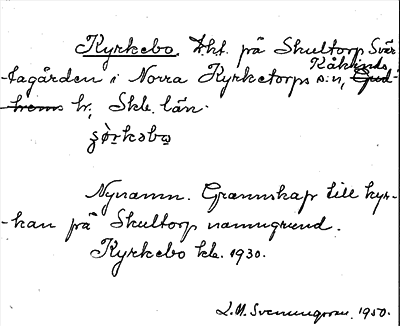 Kyrkebo. t.ht. på Skultorp Svär-
Kåkinds
tagården i Norra Kyrketorps s:n, Gud-
hems hr, Skb. län.
Nynamn. Grannskap till kyr-
kan på Skultorp namngrund.
Kyrkebo kb. 1930.
L. M. Svennungsson. 1950.